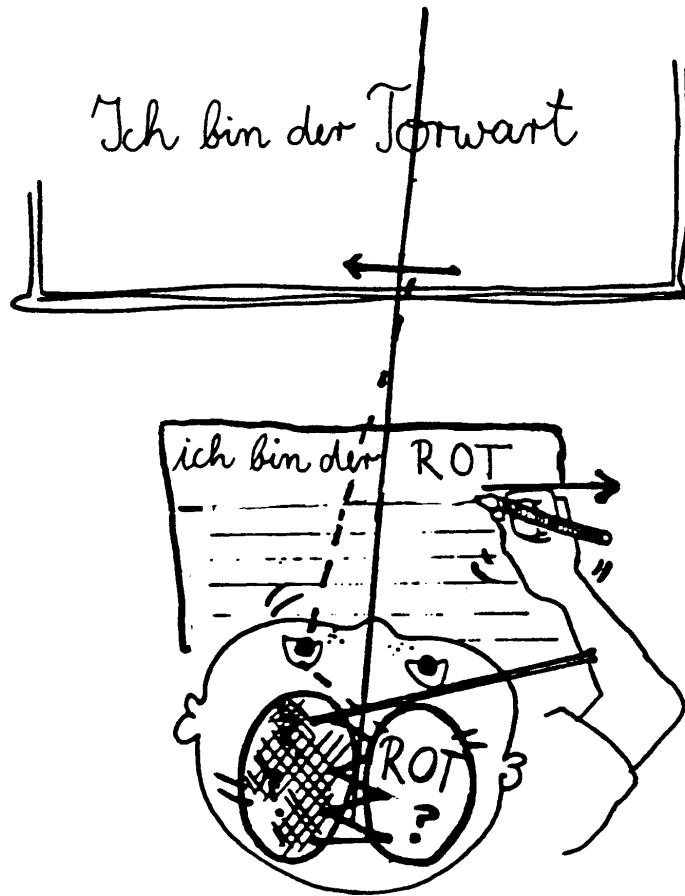 Ich bin der Torwart
ich bin der ROT
ROT
?